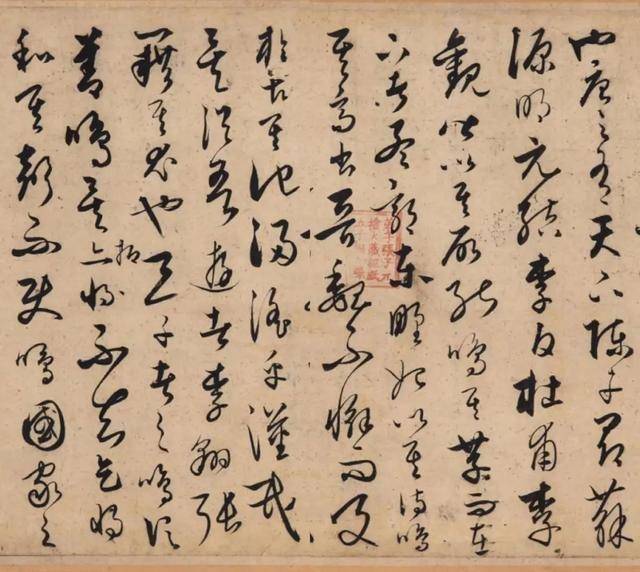 也唐之有天下陳子昂蘇
源明元結李白杜甫李
觀皆以其所能鳴其而在
下者孟郊東野始以其詩鳴
其高出晉魏不懈而及
於古其他浸淫乎漢氏
矣從吾遊者李翱張
籍其尤也三子者之鳴信
善鳴矣抑不知天將
和其聲而使鳴國家之